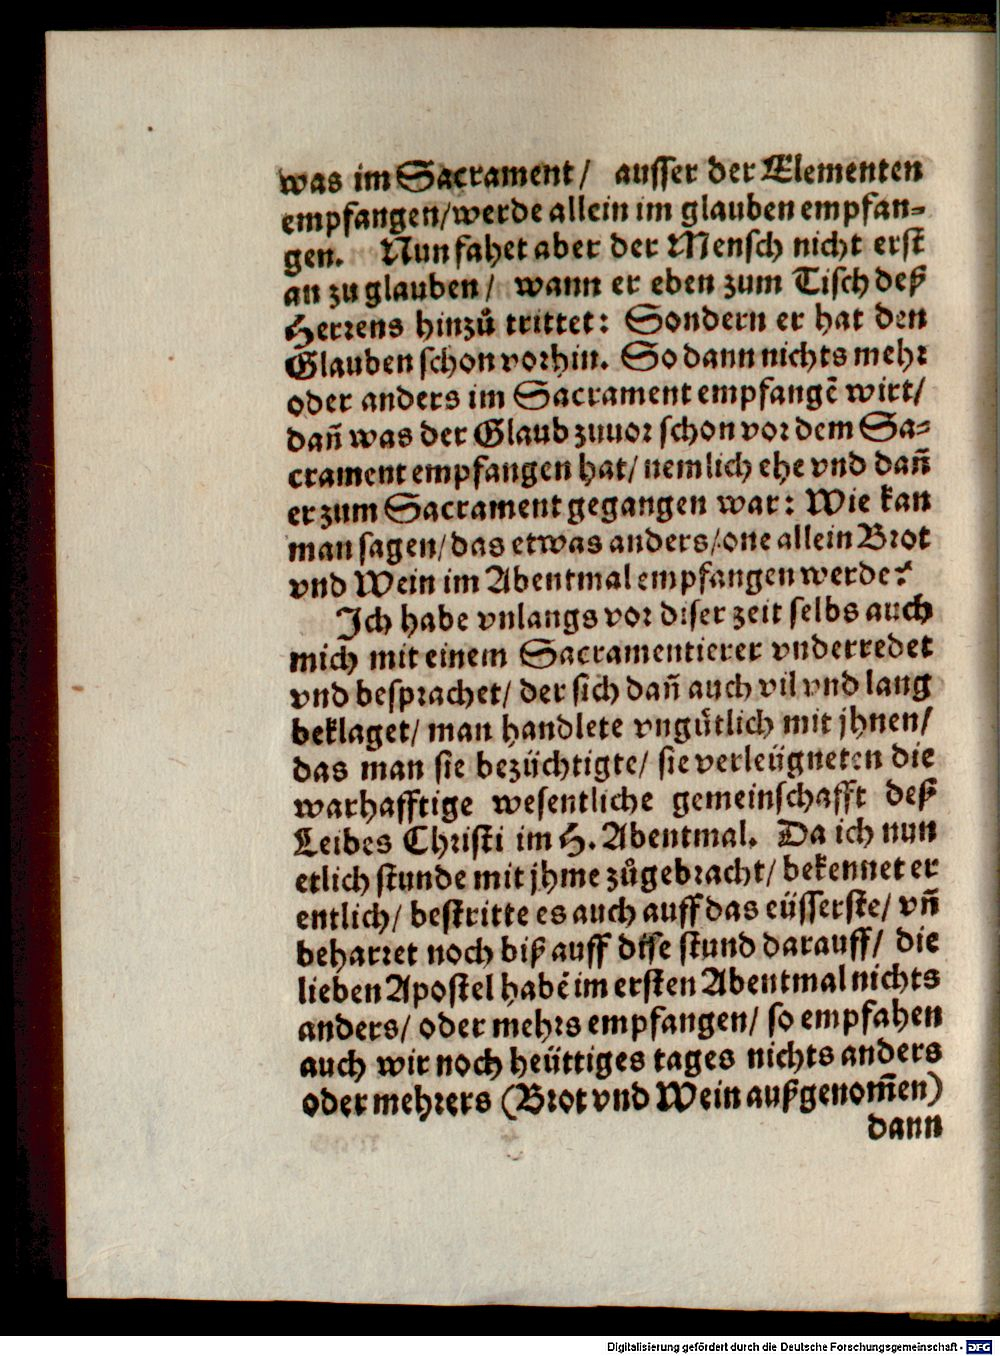 was im Sacrament/ ausser der Elementen
empfangen/werde allein im glauben empfan-
gen. Nun fahet aber der Mensch nicht erst
an zu glauben/ wann er eben zum Tisch deß
Herrens hinzů trittet: Sondern er hat den
Glauben schon vorhin. So dann nichts mehr
oder anders im Sacrament empfangẽ wirt/
dañ was der Glaub zuuor schon vor dem Sa-
crament empfangen hat/ nemlich ehe vnd dañ
er zum Sacrament gegangen war: Wie kan
man sagen/das etwas anders/one allein Brot
vnd Wein im Abentmal empfangen werde?
Ich habe vnlangs vor diser zeit selbs auch
mich mit einem Sacramentierer vnderredet
vnd besprachet/ der sich dañ auch vil vnd lang
beklaget/ man handlete vngütlich mit jhnen/
das man sie bezüchtigte/ sie verleügneten die
warhafftige wesentliche gemeinschafft deß
Leibes Christi im H. Abentmal. Da ich nun
etlich stunde mit jhme zůgebracht/ bekennet er
entlich/ bestritte es auch auff das eüsserste/ vñ
beharret noch biß auff dise stund darauff/ die
lieben Apostel habẽ im ersten Abentmal nichts
anders/ oder mehrs empfangen/ so empfahen
auch wir noch heüttiges tages nichts anders
oder mehrers (Brot vnd Wein außgenom̃en)
dann
Digitalisierung gefördert durch die Deutsche Forschungsgemeinschaft - DFG